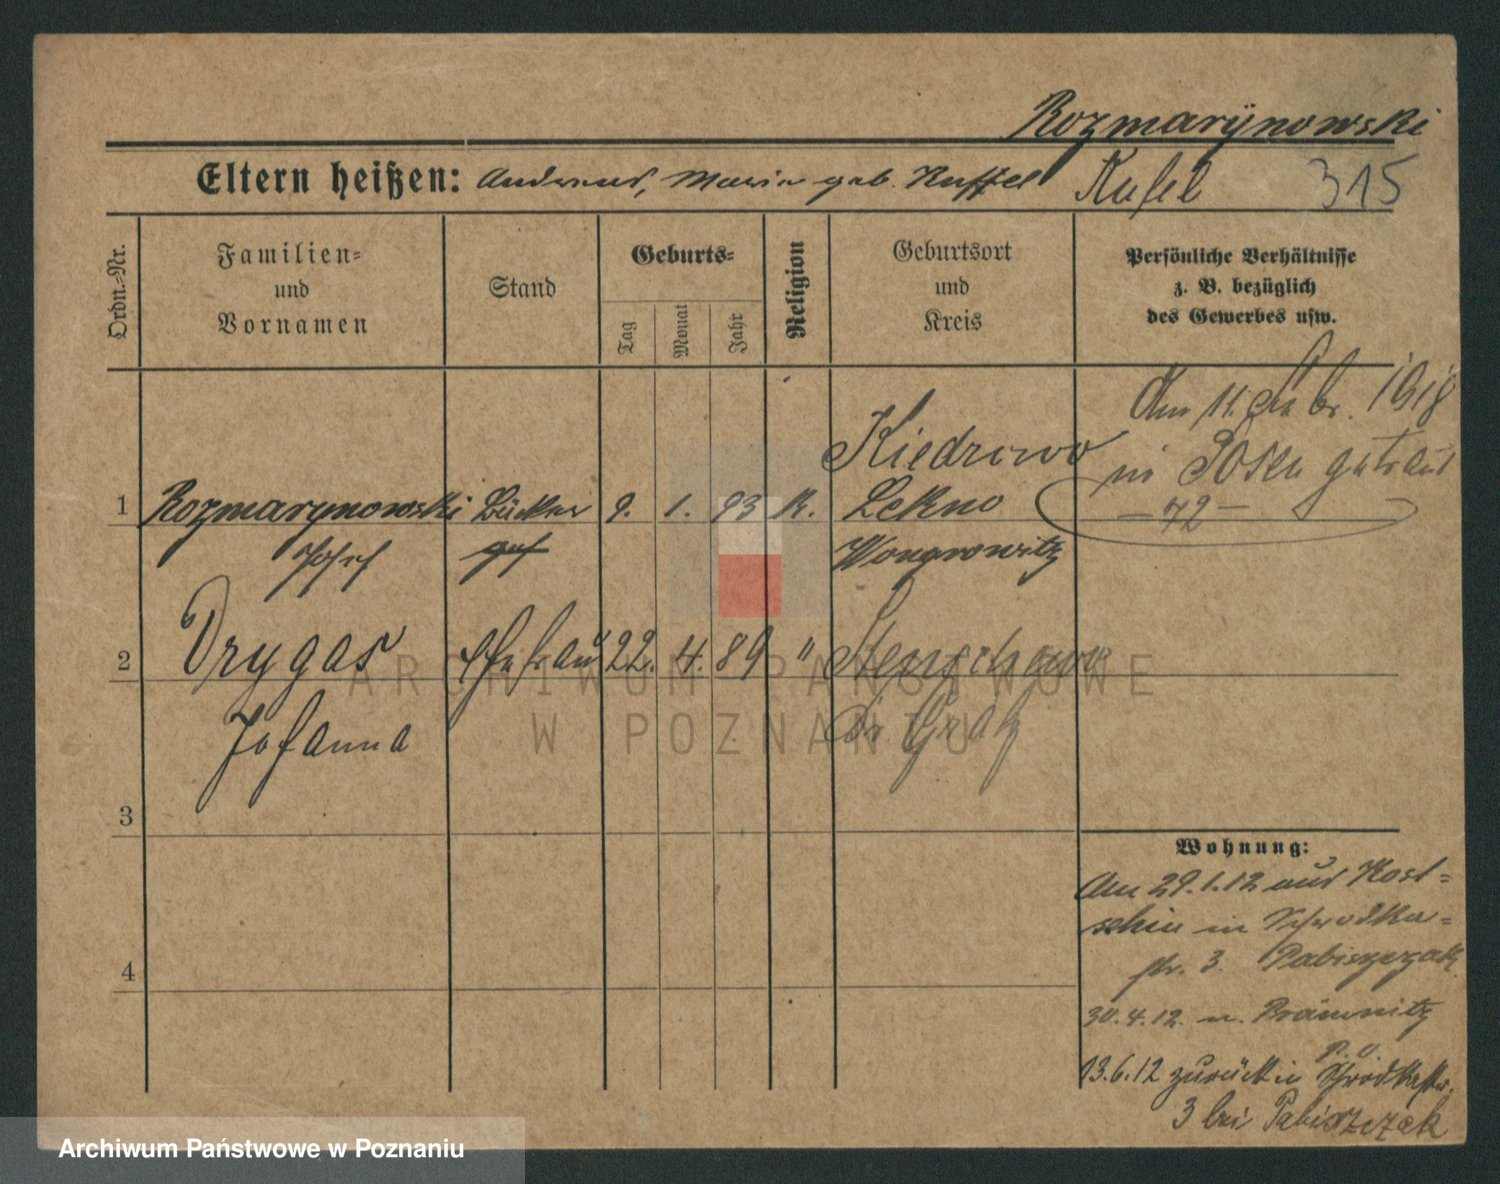 Rozmarÿnowski
Eltern heißen: Andreas, Maria geb. Kuffel Kufel 315
Ordn.-Nr.
Familien- und Vornamen
Stand
Geburts-
Tag Monat Jahr
Religion
Geburtsort und Kreis
Persönliche Verhältnisse
z. B. bezüglich
des Gewerbes usw.
Am 11. Febr. 1918
in Posen getraut
— 72 —
Kiedrowo
1 Rozmarynowski Bäcker 9. 1. 93 K. Lekno
Josef
Wongrowitz
2 Drygas Ehefrau 22. 4. 89 "
Johanna
Kr. Grätz
3
4
Wohnung:
Am 29.1.12 aus Kost-
schin in Schrodka-
str. 3. Pabiszczak
30.4.12. n. Brämnitz
13.6.12 zurück in Schrodkastr.
3 bei Pabiszczak
ARCHIWUM PAŃSTWOWE
W POZNANIU
Archiwum Państwowe w Poznaniu